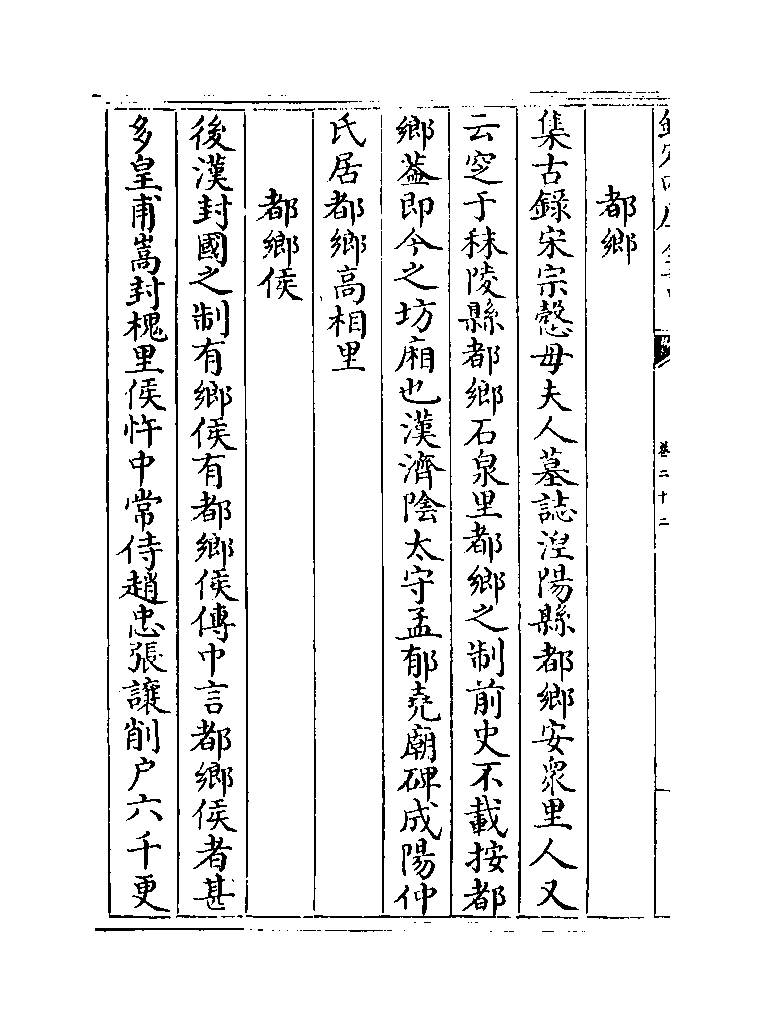 卷二十二
都鄉
集古錄宋宗慤母夫人墓誌湼陽縣都鄉安衆里人又
云窆于秣陵縣都鄉石泉里都鄉之制前史不載按都
鄉葢即今之坊廂也漢濟陰太守孟郁堯廟碑成陽仲
氏居都鄉高相里
都鄉侯
後漢封國之制有鄉侯有都鄉侯傳中言都鄉侯者甚
多皇甫嵩封槐里侯忤中常侍趙忠張讓削户六千更